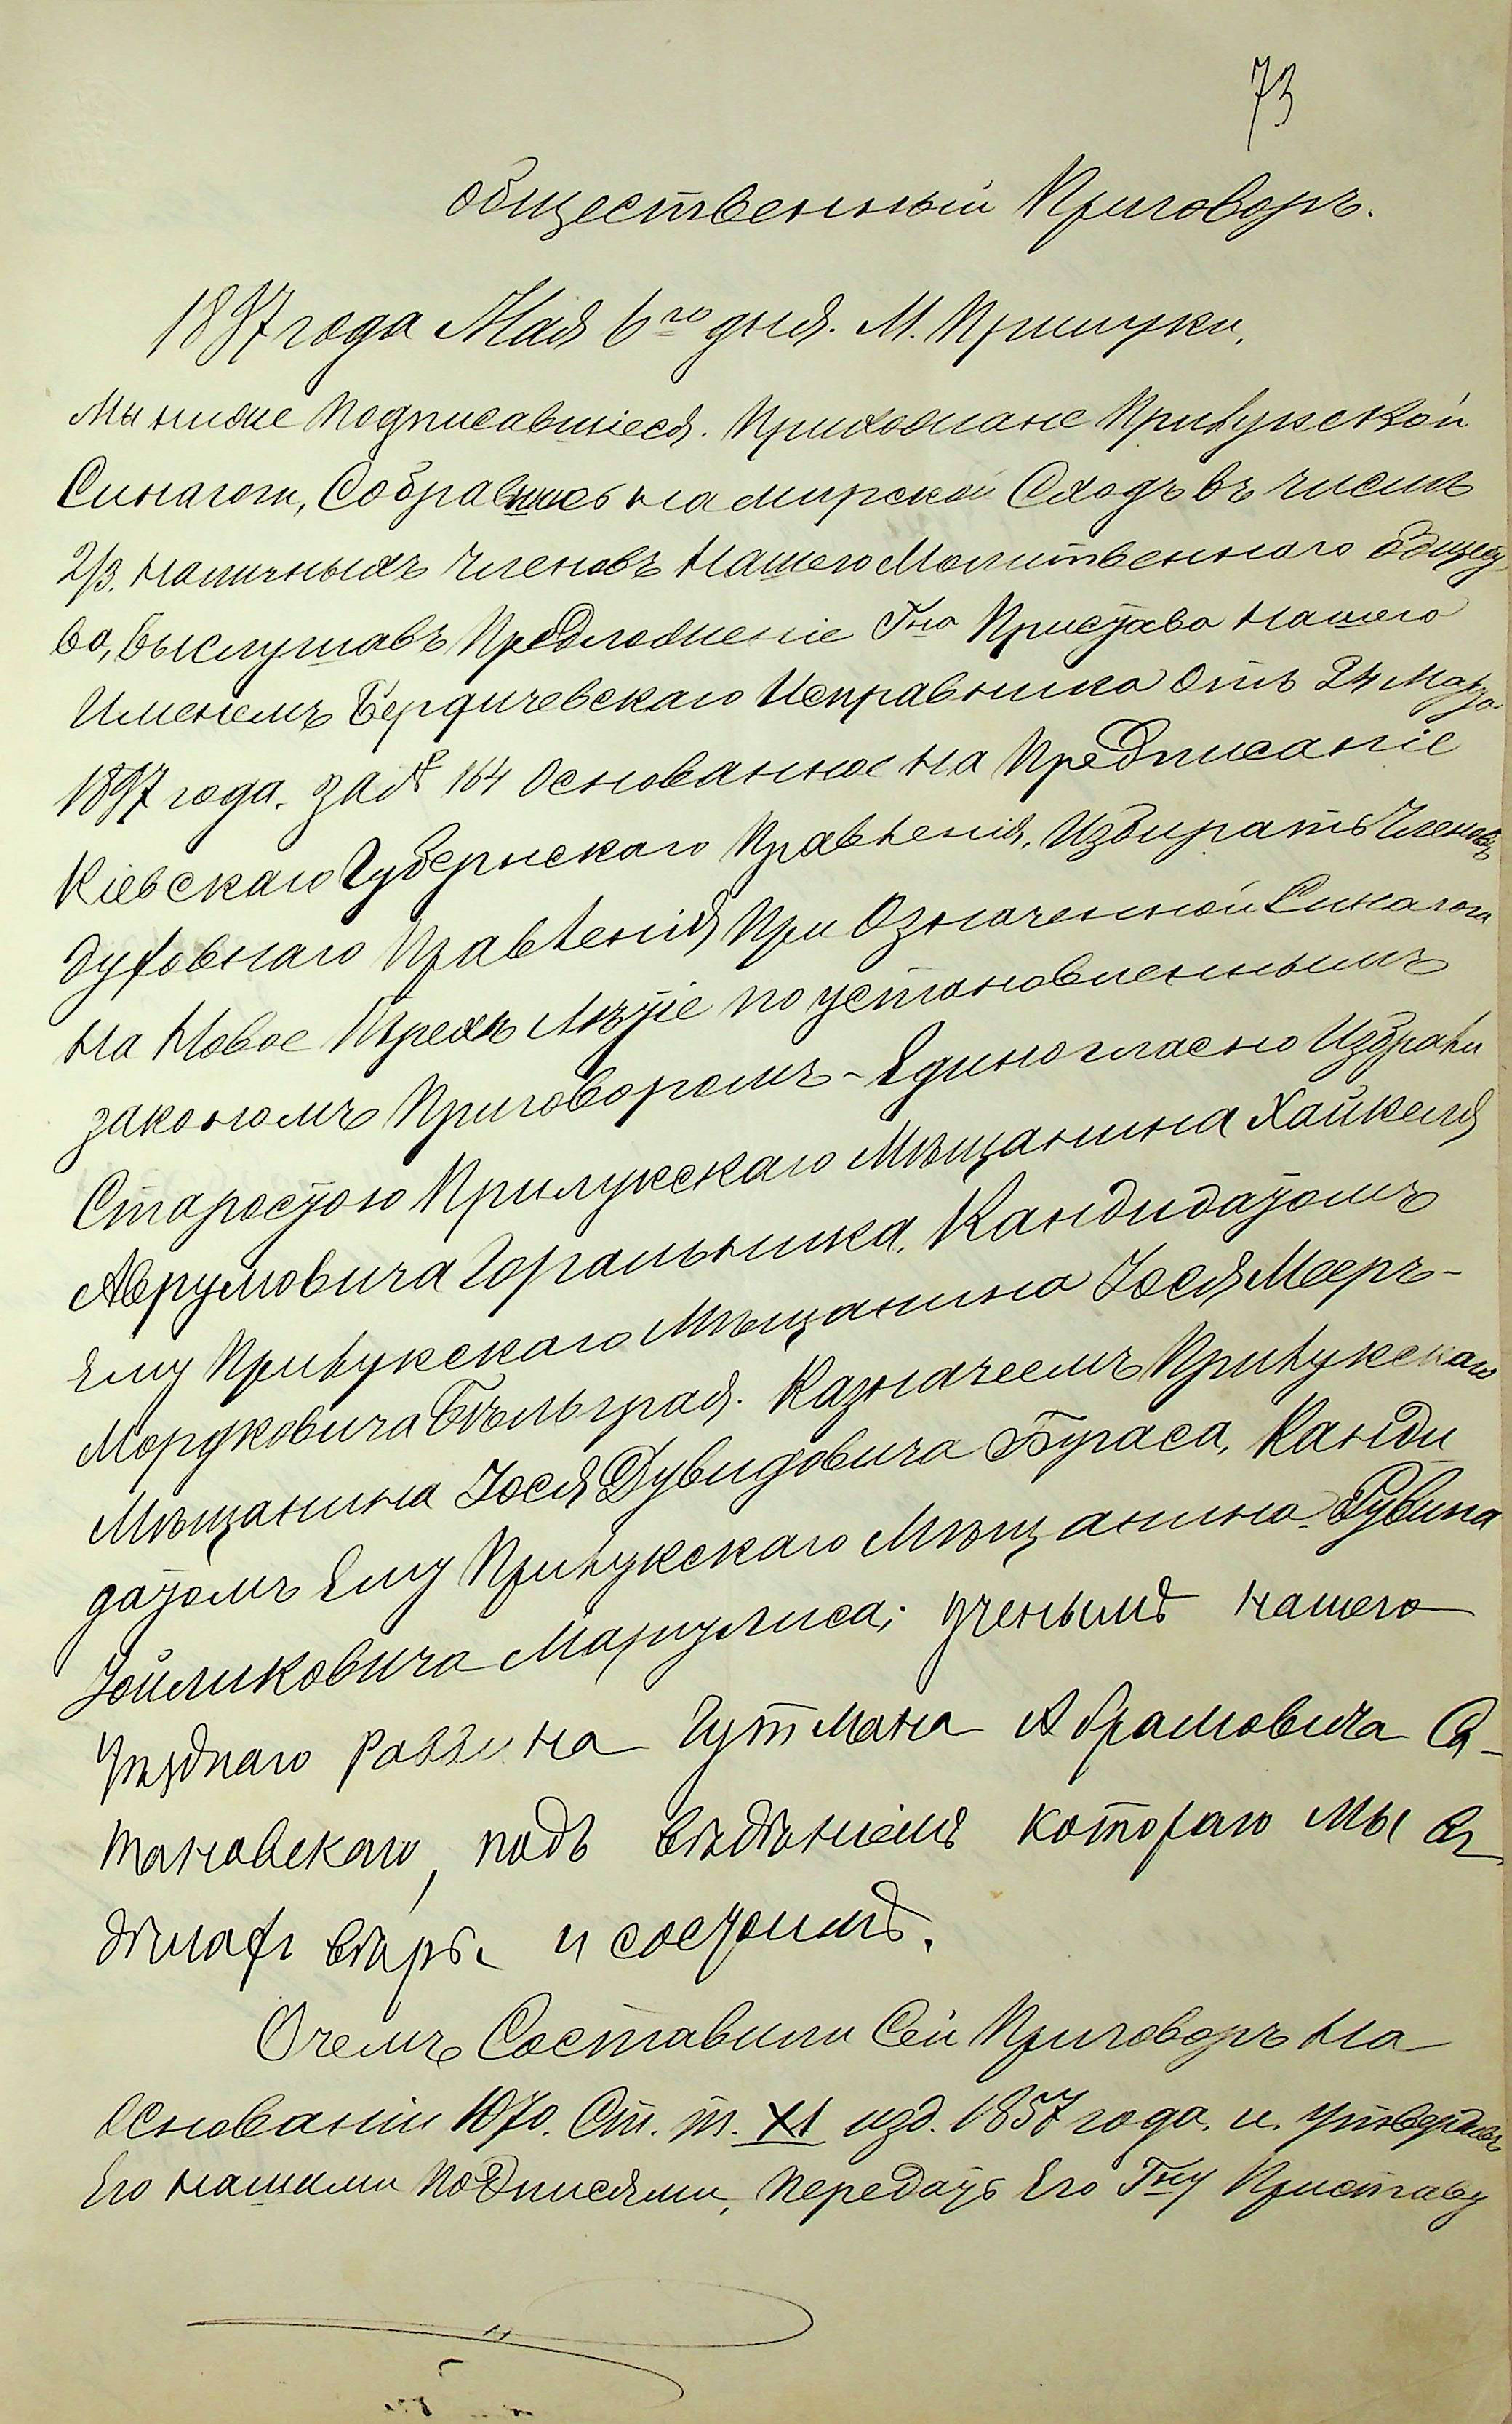 73
Общественный Приговоръ.
1897 года Мая 6го дня. М. Прилуки.
Мы ниже подписавшіеся. Прихожане Прилукской
Синагоги, Собравшись на мирской Сходъ въ числѣ
2/3. наличныхъ членовъ нашего Молитвенного Общест
ва, выслушавъ Предложеніе Гна Пристава нашего
Именемъ Бердичевскаго Исправника отъ 24 Марта
1897 года. за № 164 Основанное на Предписаніе
Кіевскаго Губернскаго Правленія, Избирать Членовъ
Духовнаго Правленія при Означенной Синагоги
на Новое Трехъ лѣтіе по установленнымъ
закономъ Приговоромъ - Единогласно Избрали
Старостою Прилукскаго Мѣщанина Хайкеля
Аврумовича Горальника, Кандидатомъ
Ему Прилукскаго Мѣщанина Іося Мееръ-
Мордковича Бѣльграя. Казначеемъ Прилукскаго
Мѣщанина Іося Дувидовича Бугаса, Канди
датомъ Ему Прилукскаго Мѣщанина Рувина
Маргулиса; ученымъ нашего
Уѣзднаго Раввина Гутмана Абрамовича Са-
тановскаго, подъ вѣдѣніемъ котораго мы въ
дѣлахъ вѣры и состоимъ.
О чемъ Составили Сей Приговоръ на
Основаніи 1070. Ст. т. XI изд. 1857 года. и утвердивъ
Его нашими Подписями, передать Его Гну Приставу